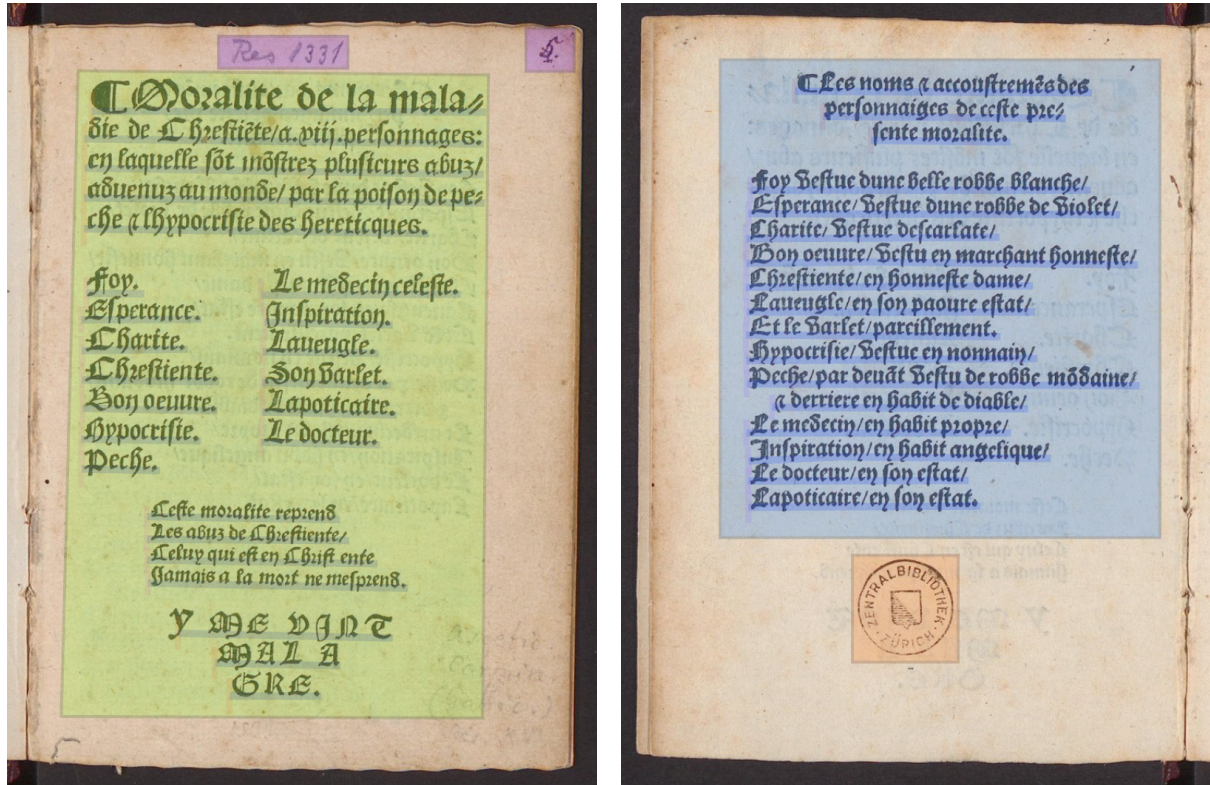 Res 1331
5.
¶Moralite de la mala⸗
die de Chrestiẽte/a.xiij.personnages:
en laquelle sõt mõstrez plusieurs abuz/
aduenuz au monde/ par la poison de pe⸗
che ⁊ lhypocrisie des hereticques.
Foy.
Esperance.
Charite.
Chrestiente.
Bon oeuure.
Hypocrisie.
Peche.
Le medecin celeste.
Inspiration.
Laueugle.
Son Varlet.
Lapoticaire.
Le docteur.
Ceste moralite reprend
Les abuz de Chrestiente/
Celuy qui est en Christ ente
Jamais a la mort ne mesprend.
Y ME VINT
MAL A
GRE.
¶Les noms ⁊ accoustremẽs des
personnaiges de ceste pre⸗
sente moralite.
Foy Vestue dune belle robbe blanche/
Esperance/ Vestue dune robbe de Violet/
Charite/ Vestue descarlate/
Bon oeuure/ Vestu en marchant honneste/
Chrestiente/en honneste dame/
Laueugle/en son paoure estat/
Et le Varlet/pareillement.
Hypocrisie/ Vestue en nonnain/
Peche/par deuãt Vestu de robbe mõdaine/
⁊ derriere en habit de diable/
Le medecin/en habit propre/
Inspiration/en habit angelique/
Le docteur/en son estat/
Lapoticaire/en son estat.
ZENTRALBIBLIOTHEK
ZÜRICH